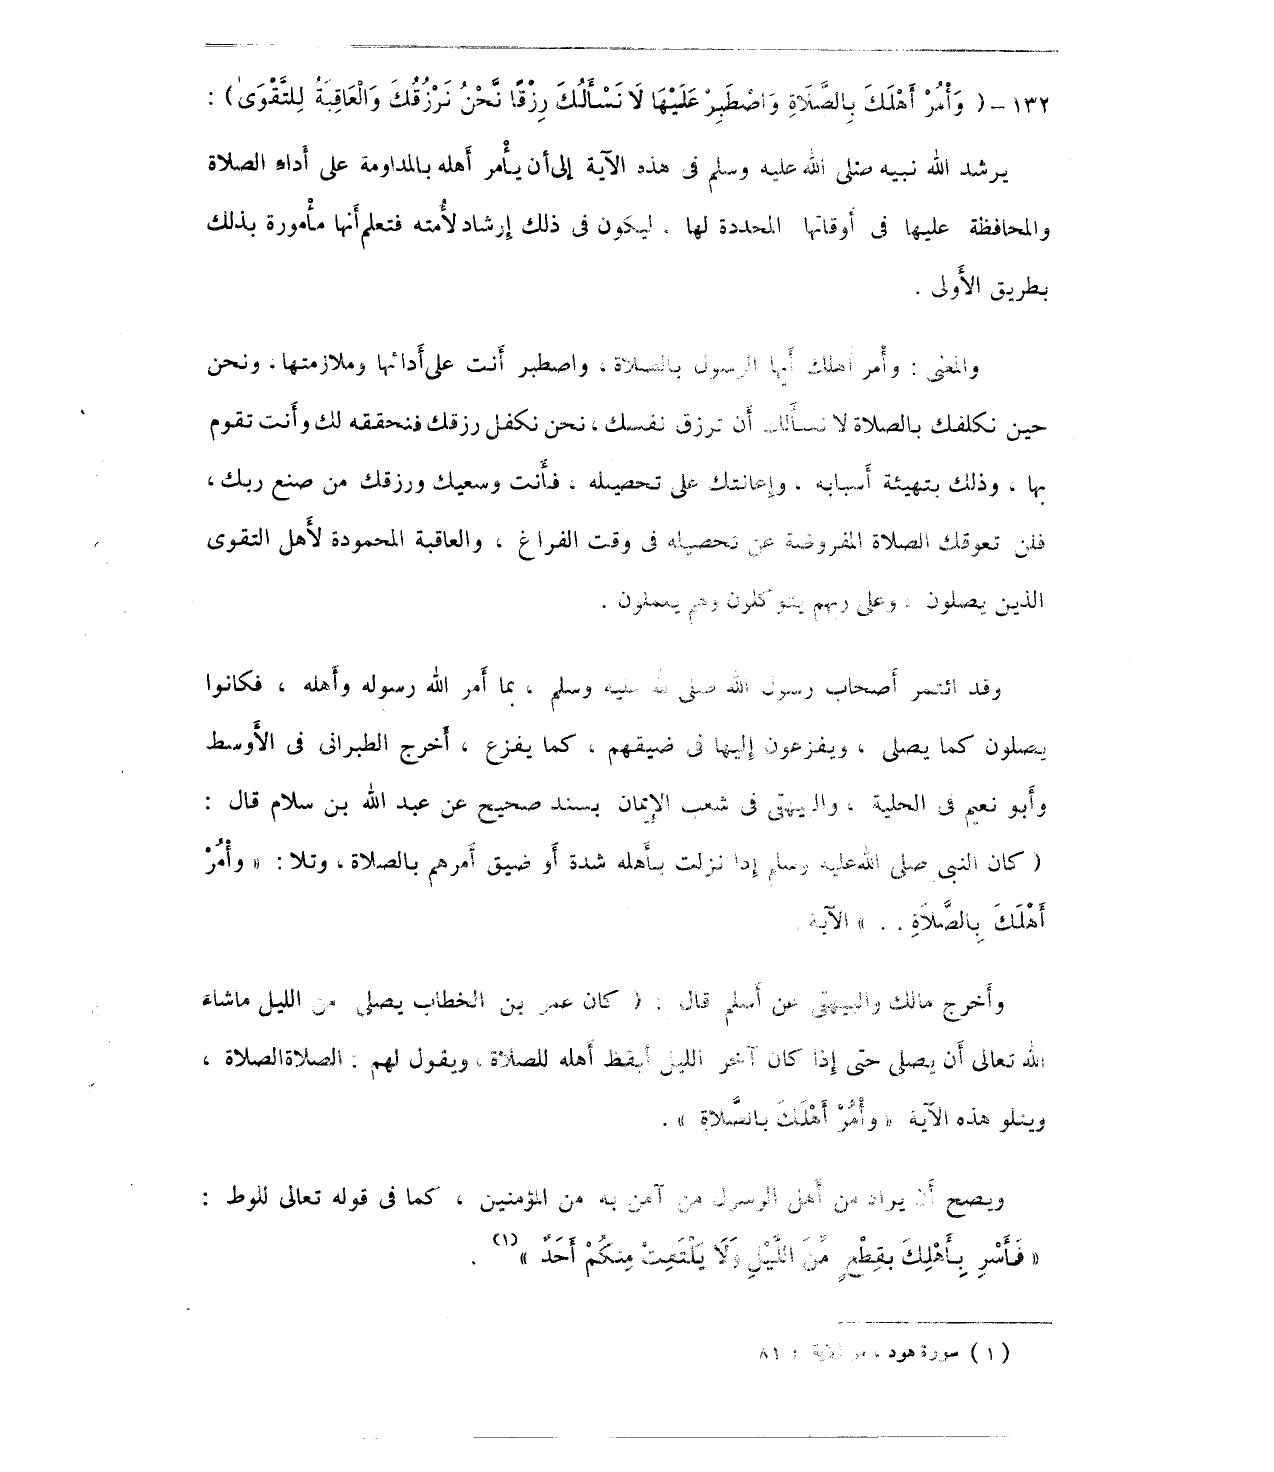 ١٣٢ - ( وَأْمُرْ أَهْلَكَ بِالصَّلَاةِ وَاصْطَبِرْ عَلَيْهَا لَا نَسْأَلُكَ رِزْقًا نَّحْنُ نَرْزُقُكَ وَالْعَاقِبَةُ لِلتَّقْوَىٰ ) :
يرشد الله نبيه صلى الله عليه وسلم فى هذه الآية إلى أن يأْمر أهله بالمداومة على أَداء الصلاة
والمحافظة عليها فى أوقاتها المحددة لها . ليكون فى ذلك إرشاد لأُمته فتعلم أَنها مأْمورة بذلك
بطريق الأَولى .
والمعنى : وأْمر أهلك أَيها الرسول بالصلاة ، واصطبر أَنت على أَدائها وملازمتها ، ونحن
حين نكلفك بالصلاة لا نسأَلك أَن ترزق نفسك ، نحن نكفل رزقك فنحققه لك وأَنت تقوم
بها ، وذلك بتهيئة أَسبابه ، وإعانتك على تحصيله ، فأَنت وسعيك ورزقك من صنع ربك ،
فلن تعوقك الصلاة المفروضة عن تحصيله فى وقت الفراغ ، والعاقبة المحمودة لأَهل التقوى
الذين يصلون ، وعلى ربهم يتوكلون وهم يعملون .
وقد ائتمر أَصحاب رسول الله صلى الله عليه وسلم ، بما أَمر الله رسوله وأَهله ، فكانوا
يصلون كما يصلى ، ويفزعون إليها فى ضيقهم ، كما يفزع ، أَخرج الطبرانى فى الأَوسط
وأَبو نعيم فى الحلية ، والبيهقى فى شعب الإِيمان بسند صحيح عن عبد الله بن سلام قال :
( كان النبى صلى الله عليه وسلم إذا نزلت بأَهله شدة أَو ضيق أَمرهم بالصلاة ، وتلا : « وأْمُرْ
أَهْلَكَ بِالصَّلاَةِ . . » الآية .
وأَخرج مالك والبيهقى عن أَسلم قال : ( كان عمر بن الخطاب يصلى من الليل ماشاء
الله تعالى أَن يصلى حتى إذا كان آخر الليل أَيقظ أَهله للصلاة ، ويقول لهم : الصلاة الصلاة ،
ويتلو هذه الآية « وأْمُرْ أَهْلَكَ بالصَّلاةِ » .
ويصح أَن يراد من أَهل الرسول من آمن به من المؤمنين ، كما فى قوله تعالى للوط :
« فَأَسْرِ بِأَهْلِكَ بقِطْعٍ مِّنَ اللَّيْلِ وَلَا يَلْتَفِتْ مِنكُمْ أَحَدٌ »(١) .
(١) سورة هود ، من الآية : ٨١